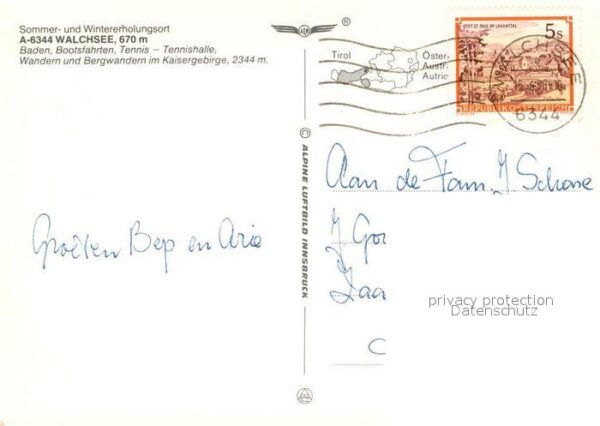 Sommer- und Wintererholungsort
A-6344 WALCHSEE, 670 m
Baden, Bootsfahrten, Tennis – Tennishalle,
Wandern und Bergwandern im Kaisergebirge, 2344 m.
Groeten Bep en Arie
®
© ALPINE LUFTBILD INNSBRUCK
Tirol
Öster
Austri
Autric
STIFT ST. PAUL IM LAVANTTAL
5s
REPUBLIK ÖSTERREICH
WALCHSEE
6344
Aan de Fam. J Schone
J Gor
Zaa
privacy protection
Datenschutz